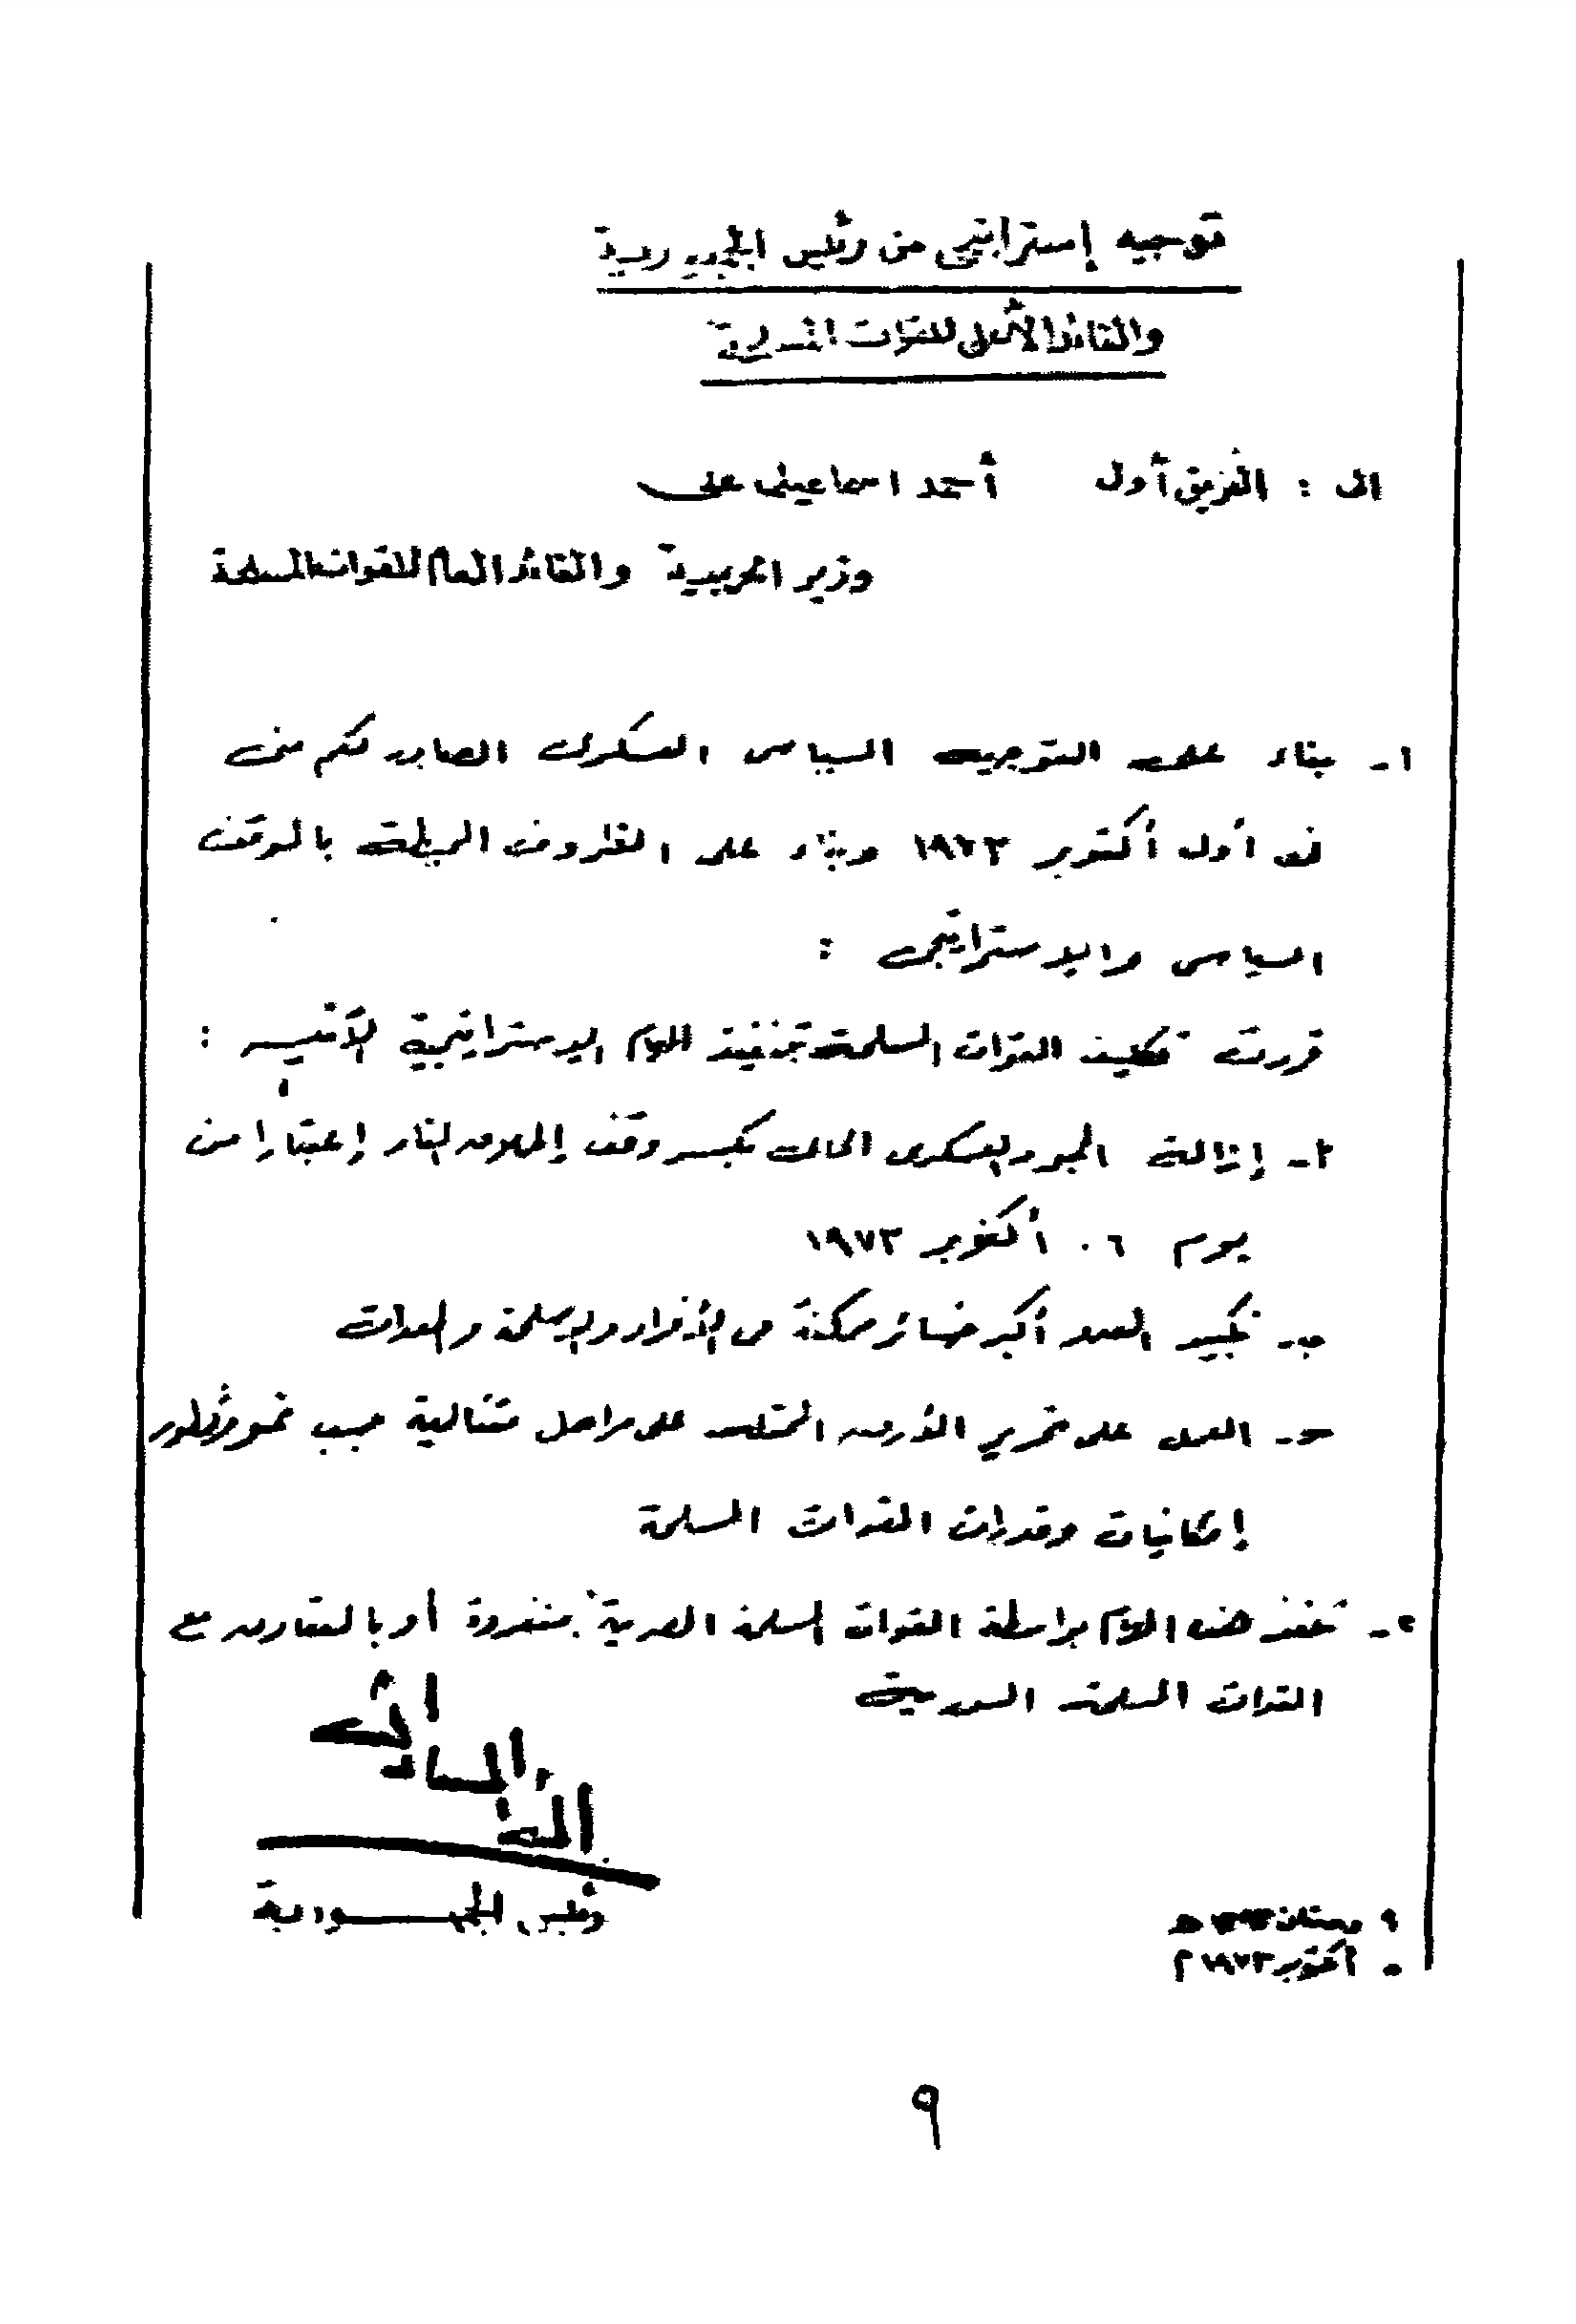 توجيه إستراتيجى من رئيس الجمهورية
والقائد الأعلى للقوات المسلحة
الى : الفريق أول أحمد اسماعيل على
وزير الحربية والقائد العام للقوات المسلحة
١- بناء على التوجيه السياسى العسكرى الصادر لكم منى
فى أول أكتوبر ١٩٧٣ وبناء على الظروف المحيطة بالموقف
السياسى والإستراتيجى :
قررت تكليف القوات المسلحة بتنفيذ المهام الإستراتيجية الآتية :
أ- إزالة الجمود العسكرى الحالى بكسر وقف إطلاق النار إعتباراً من
يوم ٦ أكتوبر ١٩٧٣
ب- تكبيد العدو أكبر خسائر ممكنة من الأفراد والأسلحة والمعدات
حـ- العمل على تحرير الأرض المحتلة على مراحل متتالية حسب نمو وتطور
إمكانيات وقدرات القوات المسلحة
٢- تنفذ هذه المهام بواسطة القوات المسلحة المصرية منفردة أو بالتعاون مع
القوات المسلحة السورية
أنور السادات
رئيس الجمهورية
٩ رمضان ١٣٩٣ هـ
٥ أكتوبر ١٩٧٣ م
٩